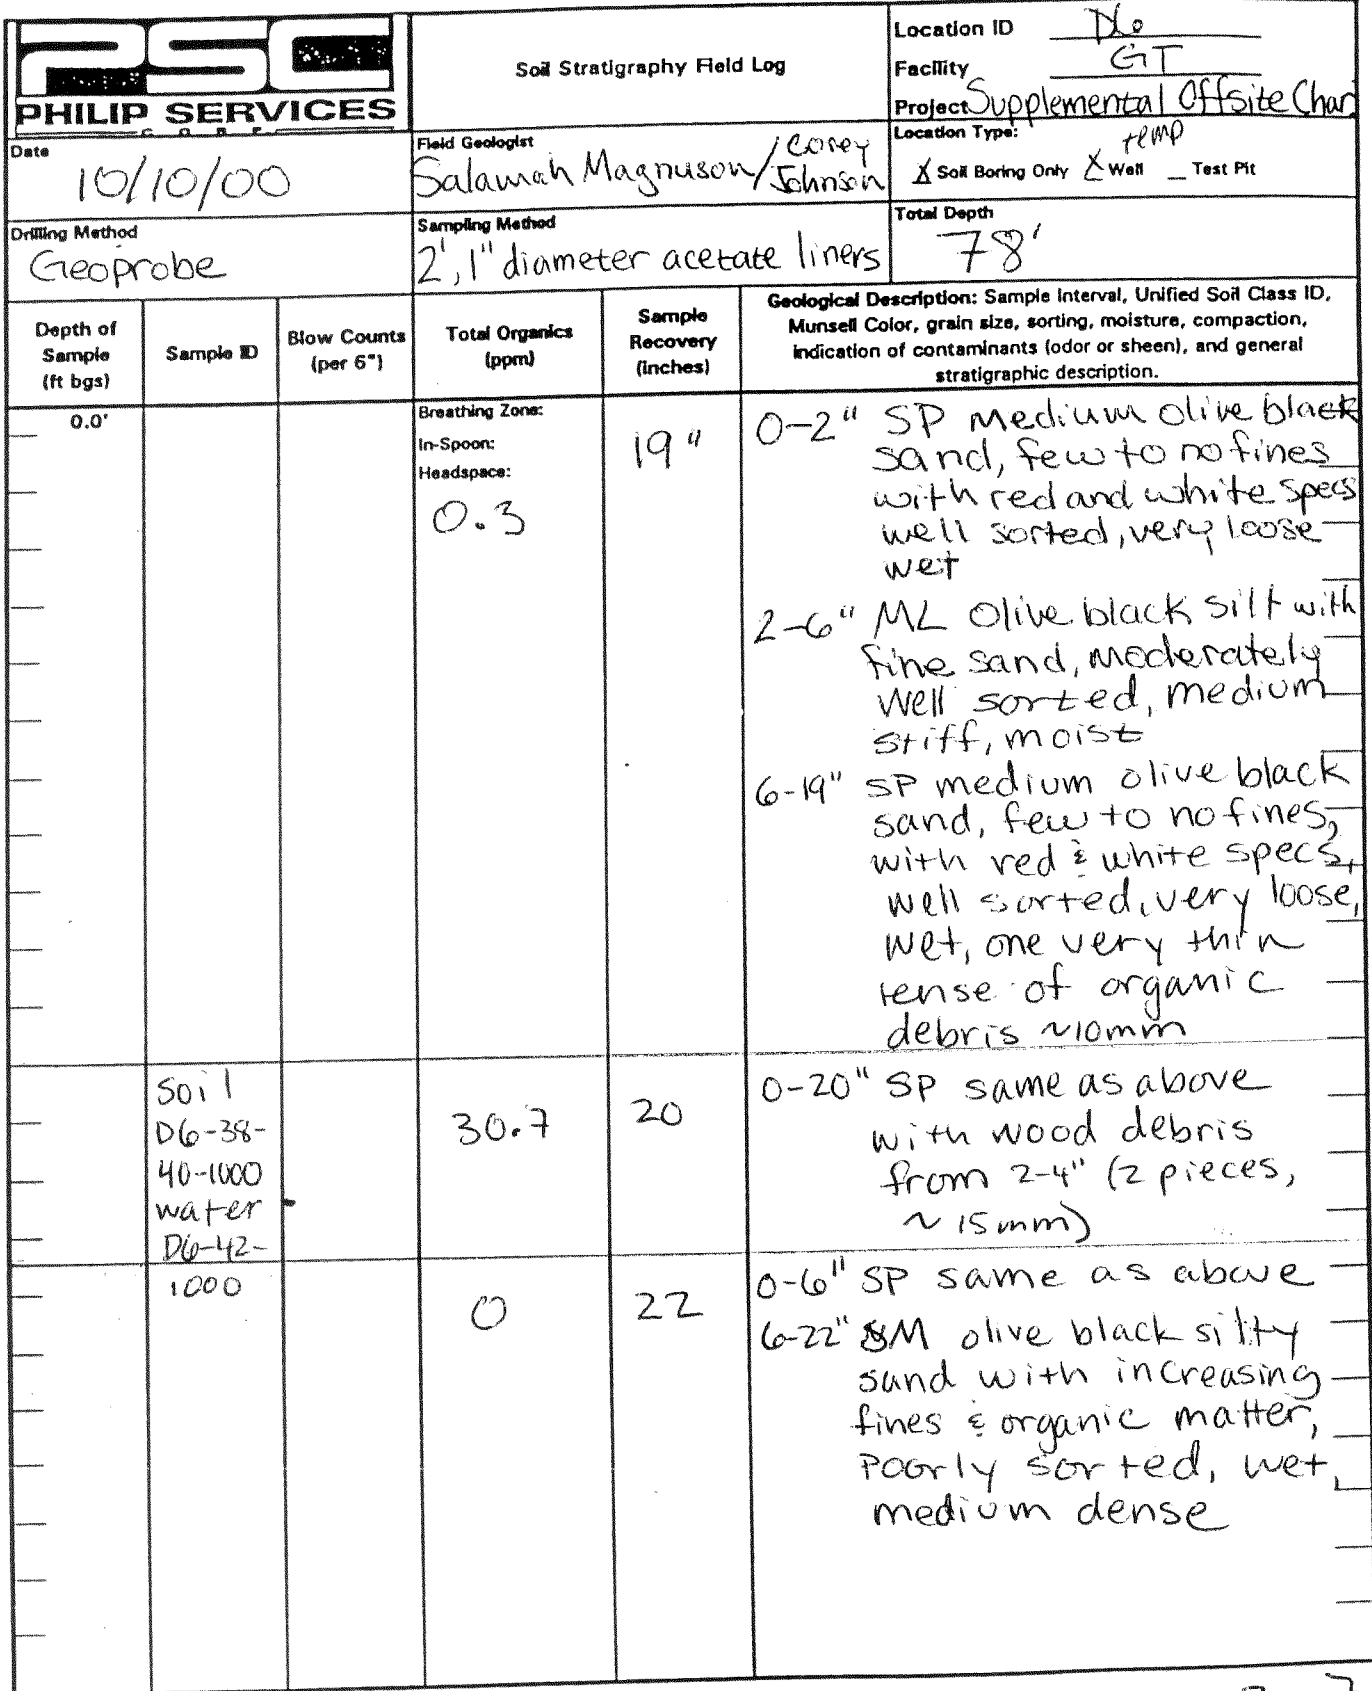 PSC
PHILIP SERVICES
CORP
Soil Stratigraphy Field Log
Location ID D6
Facility GT
Project Supplemental Offsite Char
Date
10/10/00
Field Geologist
Salamah Magnuson/Corey Johnson
Location Type:
temp
X Soil Boring Only X Well _ Test Pit
Drilling Method
Geoprobe
Sampling Method
2', 1" diameter acetate liners
Total Depth
78'
Depth of
Sample
(ft bgs)
Sample ID
Blow Counts
(per 6")
Total Organics
(ppm)
Sample
Recovery
(inches)
Geological Description: Sample Interval, Unified Soil Class ID,
Munsell Color, grain size, sorting, moisture, compaction,
indication of contaminants (odor or sheen), and general
stratigraphic description.
0.0'
Breathing Zone:
In-Spoon:
Headspace:
0.3
19"
0-2" SP Medium olive black
sand, few to no fines
with red and white specs
well sorted, very loose
wet
2-6" ML Olive black silt with
fine sand, moderately
well sorted, medium
stiff, moist
6-19" SP medium olive black
sand, few to no fines,
with red & white specs,
well sorted, very loose,
wet, one very thin
lense of organic
debris ~10mm
Soil
D6-38-
40-1000
water
D6-42-
1000
30.7
20
0-20" SP same as above
with wood debris
from 2-4" (2 pieces,
~15mm)
0
22
0-6" SP same as above
6-22" SM olive black silty
sand with increasing
fines & organic matter,
poorly sorted, wet,
medium dense